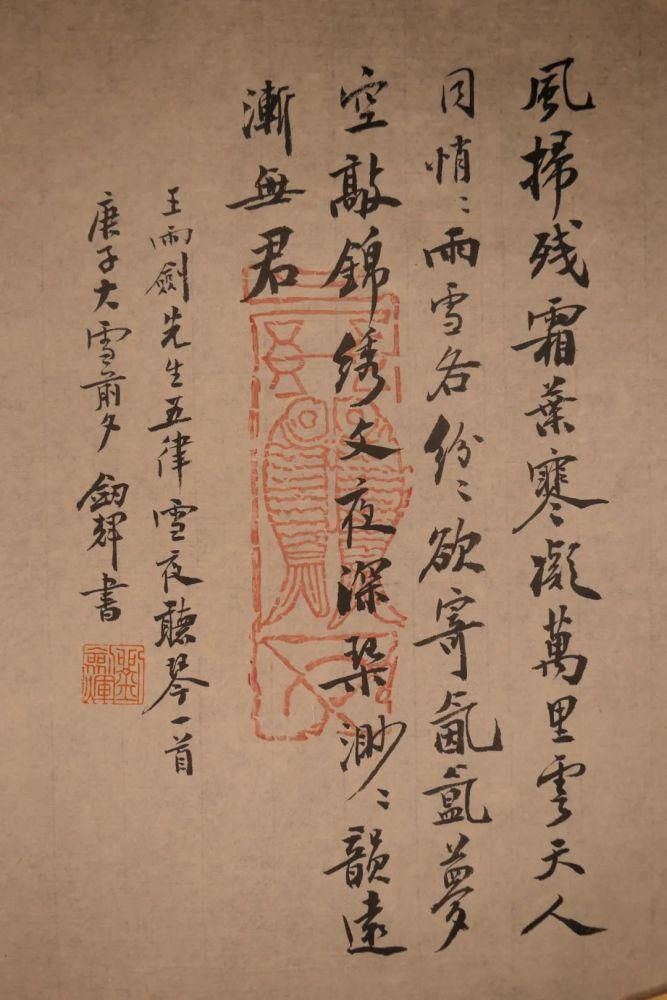 風掃残霜葉寒凝萬里雲天人
同悄〻雨雪各份〻欲寄氤氳夢
空敲錦绣文夜深琹渺〻韻遠
漸無君
王雨劍先生五律雪夜聽琴一首
庚子大雪前夕 釰輝書